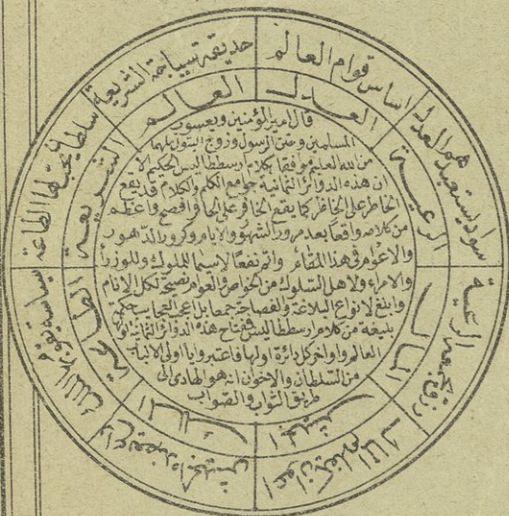 اساس قوام العالم
حديقة سياجة الشريعة
سلطانة يحببها الطاعة
سياسة يقوم بها الملك
راع يعضده الجيش
اعوان يكفلهم المال
رزق تجمعه الرعية
سواد يستعبدهم العدل
العدل
العالم
الشريعة
الطاعة
الملك
الجيش
المال
الرعية
قال امير المؤمنين ويعسوب
المسلمين وختن الرسول وزوج البتول ملهما
من الله العليم موافقا بكلام ارسطاطاليس الحكيم الا
ان هذه الدوائر الثمانية جوامع الكلم والكلام قد يقع
الخاطر على الخاطر كما يقع الحافر على الحافر وافصح واعظم
من كلامه واقعا بعد مرور الشهور والايام وكرور الدهور
والاعوام في هذا المقام واتم نفعا لاسيما للملوك وللوزراء
والامراء ولاهل السلوك من الخواص والعوام نصيحة لكل الانام
وابلغ لانواع البلاغة والفصاحة جمعا بل اعجز العجايب حكمة
بليغة من كلام ارسطاطاليس فمفتاح هذه الدوائر الثمانية اولها
العالم واواخر كل دائرة اولها فاعتبروا يا اولى الالباب
من السلطان والاخوان انه هو الهادى الى
طريق الثواب والصواب